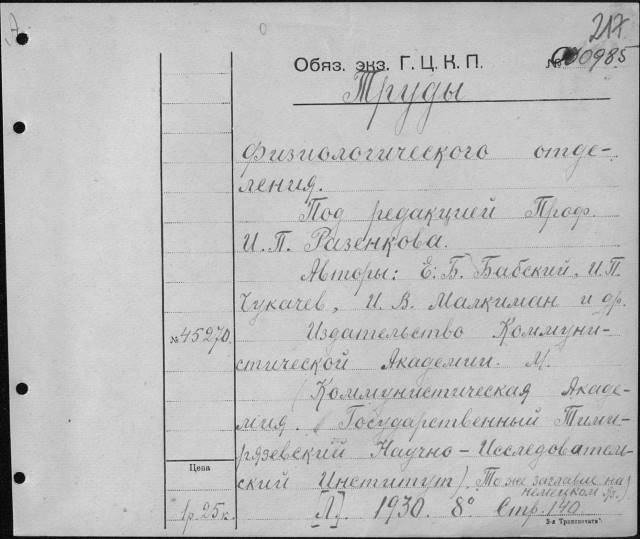 217
Обяз. экз. Г. Ц. К. П. № 0985
Труды
физиологического отде-
ления.
Под редакцией Проф.
И. П. Разенкова.
Авторы: Е. Б. Бабский, И. П.
Чукачев, И. В. Малкиман и др.
№ 45270. Издательство Коммуни-
стической Академии. М.
(Коммунистическая Акаде-
мия. Государственный Тими-
рязевский Научно-Исследователь-
ский Институт). То же заглавие на
немецком яз.
Цена
1р. 25к. [Л]. 1930. 8° Стр. 140.
3-я Транспечать